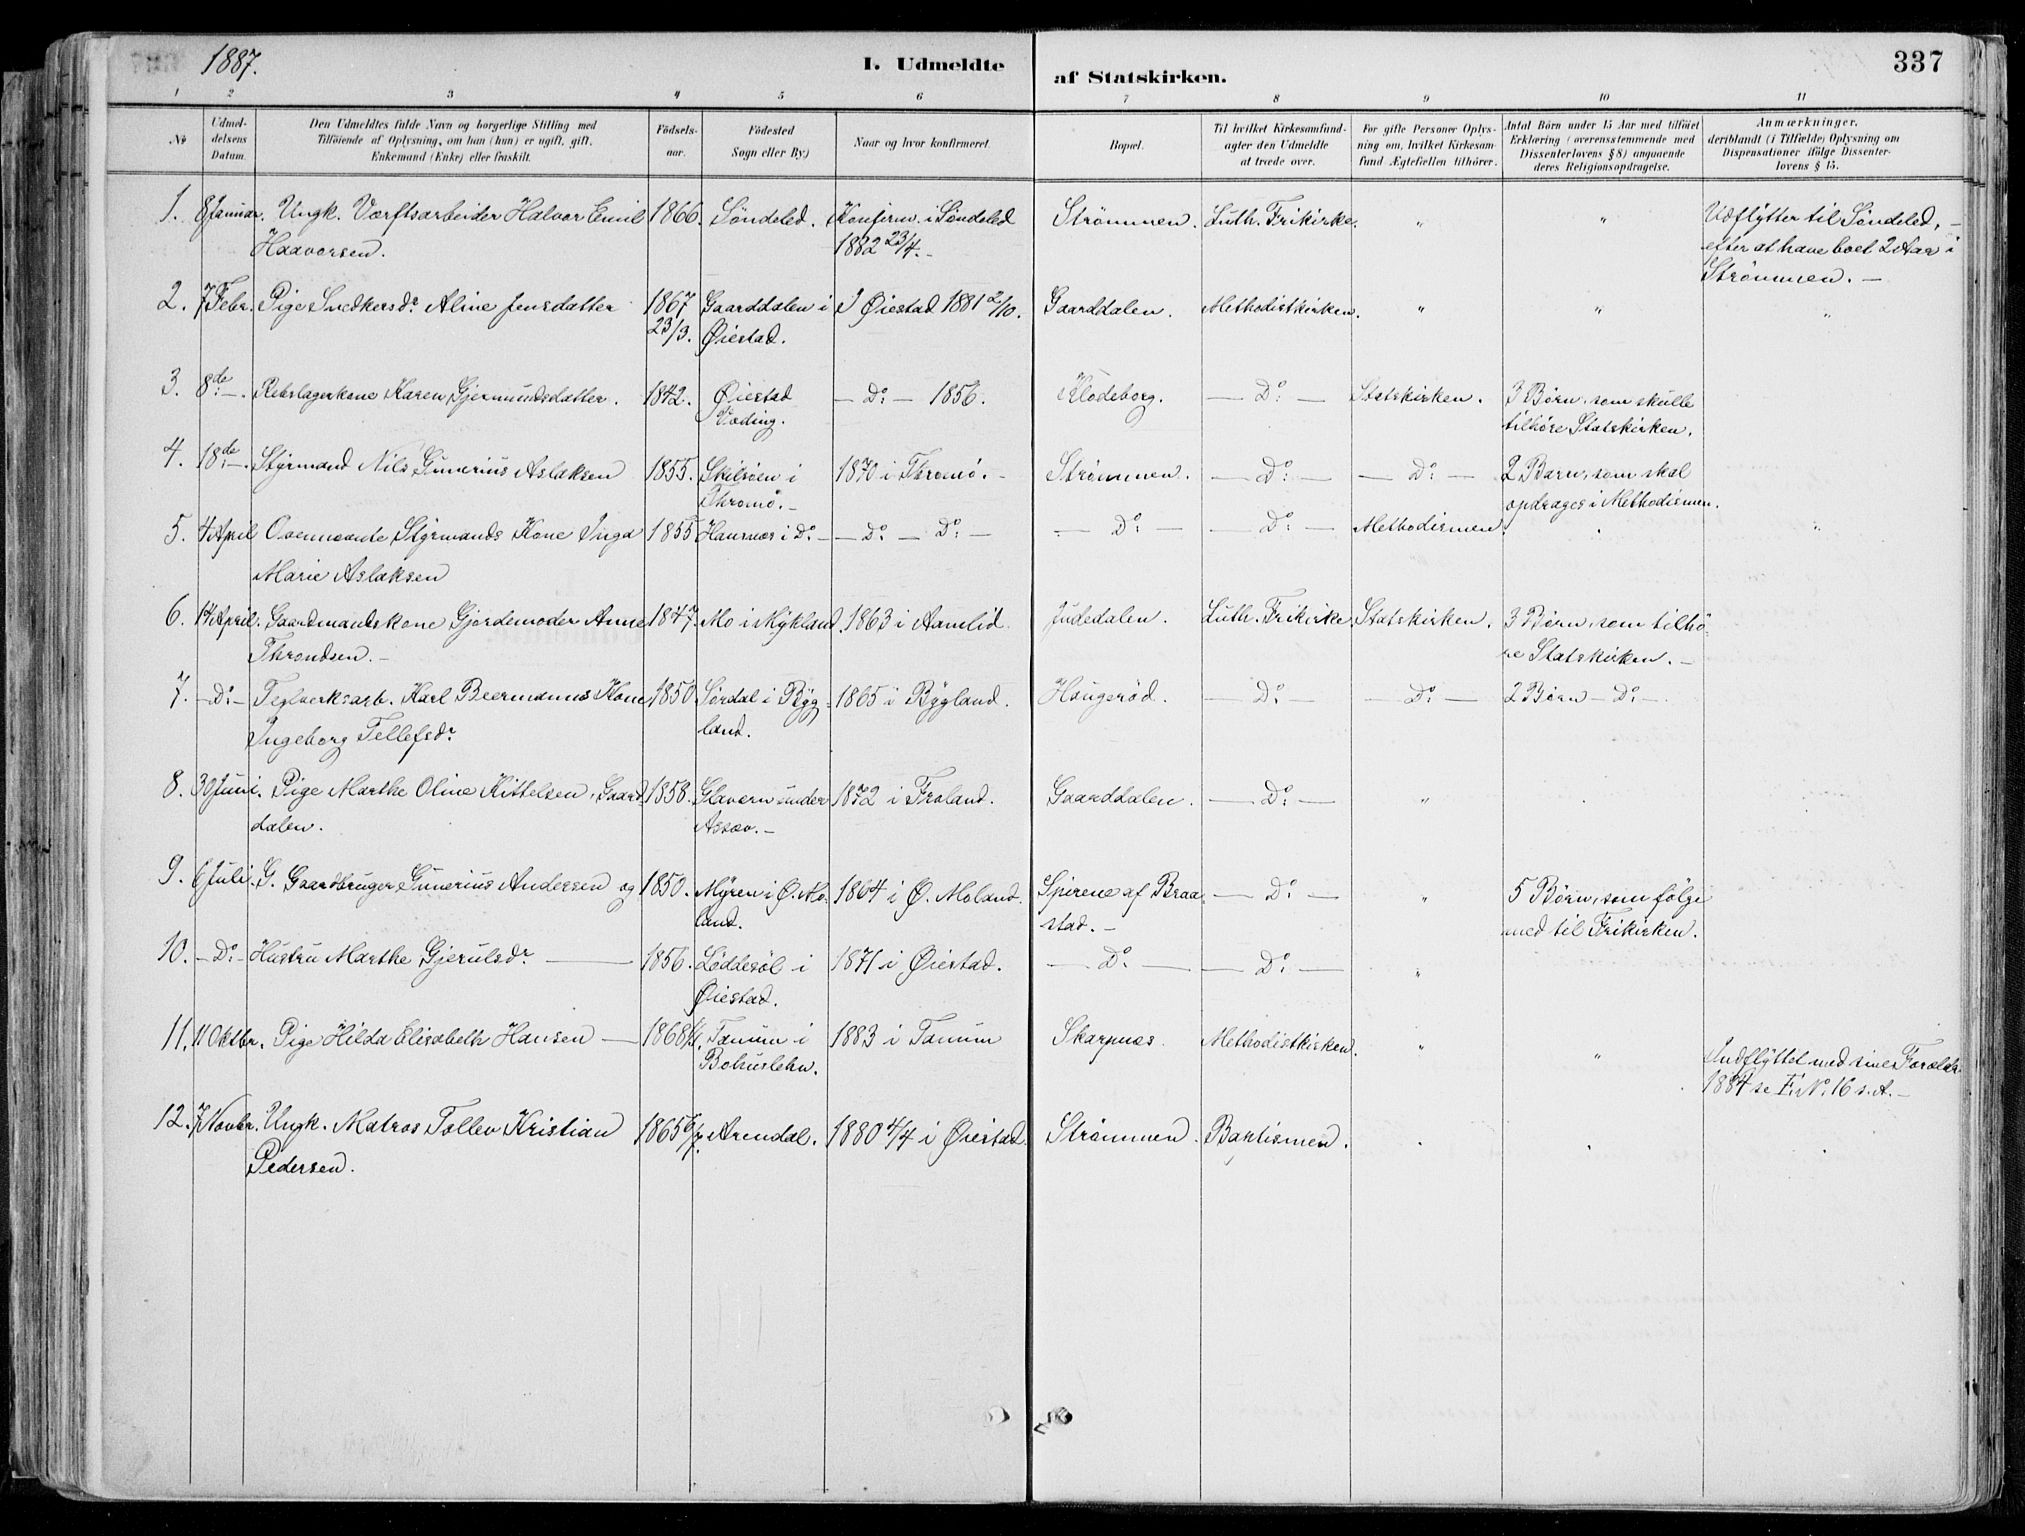 1887.
I. Udmeldte af Statskirken.
337
1 2 3 4 5 6 7 8 9 10 11
No
Udmel-
delsens
Datum.
Den Udmeldtes fulde Navn og borgerlige Stilling med
Tilföiende af Oplysning, om han (hun) er ugift, gift,
Enkemand (Enke) eller fraskilt.
Födsels-
aar.
Födested
Sogn eller By)
Naar og hvor konfirmeret.
Bopæl.
Til hvilket Kirkesamfund-
agter den Udmeldte
at træde over.
For gifte Personer Oplys-
ning om, hvilket Kirkesam-
fund Ægtefællen tilhörer.
Antal Börn under 15 Aar med tilföiet
Erklæring (overensstemmende med
Dissenterlovens § 8) angaaende
deres Religionsopdragelse.
Anmærkninger.
deriblandt (i Tilfælde) Oplysning om
Dispensationer ifölge Dissenter-
lovens § 15.
1. 8 Januar. Ungk. Værftsarbeider Halvor Emil 1866. Söndeled. Konfirm. i Söndeled Strömmen. Luth. Frikirke. " " Udflytter til Söndeled, -
Haavorsen. 1882 23/4. - efter at have boet 2 Aar i
Strömmen. -
2. 7 Febr. Pige Snedkersdr. Aline Jensdatter 1867 Gaarddalen i I Øiestad 1881 2/10. Gaarddalen. Methodistkirken. " " "
23/3. Øiestad.
3. 8de -. Rebslagerkone Karen Gjermundsdatter. 1842. Øiestad - Do: - 1856. Klodeborg. - Do: - Statskirken. 3 Börn, som skulle
Væding. tilhöre Statskirken.
4. 18de -. Styrmand Nils Gunerius Aslaksen 1855. Skilsöen i 1870 i Thromö. - Strömmen. - Do: - - Do: - 2 Barn, som skal
Thromö. - opdrages i Methodismen.
5. 4 April Ovennævnte Styrmands Kone Inga 1855 Hausnæs i Do. - - Do: - Do: - - Do: - - Do: - Methodismen. "
Marie Aslaksen
6. 14 April. Gaardmandskone Gjordemoder Anne 1847. Mo i Mykland. 1863 i Aamlid. Judedalen. Luth. Frikirke Statskirken. 3 Börn, som tilhö-
Throndsen. - re Statskirken. -
7. - Do: - Teglværksarb. Karl Beermanns Kone 1850 Sördal i Byg- 1865 i Bygland. Haugeröd. - Do: - - Do: - 2 Börn - Do: -.
Ingeborg Tellefsdr. land.
8. 30 Juni. Pige Marthe Oline Kittelsen, Gaard- 1858. Glavern under 1872 i Froland. Gaarddalen. - Do: - "
dalen. Assæv. -
9. 6 Juli. G. Gaardbruger Gunerius Andersen og 1850. Myren i Ø. Mo- 1864 i Ø. Moland. Spirene af Braa- - Do: - " 5 Börn, som fölge
land. stad. - med til Frikirken.
10. - Do: - Hustru Marthe Gjerulsdr. 1856. Löddesöl i 1871 i Øiestad. - Do: - - Do: - "
Øiestad.
11. 11 Oktbr. Pige Hilda Elisabeth Hansen - 1868 Tanum i 1883 i Tanum Skarpnæs. Methodistkirken. " " Indflyttet med sine Forældre
Bohuslehn. 1884 se No: 16 s. A. -
12. 7 Novbr. Ungk. Matros Tollev Kristian 1865 6/7. Arendal. 1880 4/4 i Øiestad. Strömmen. Baptismen. " " "
Pedersen.